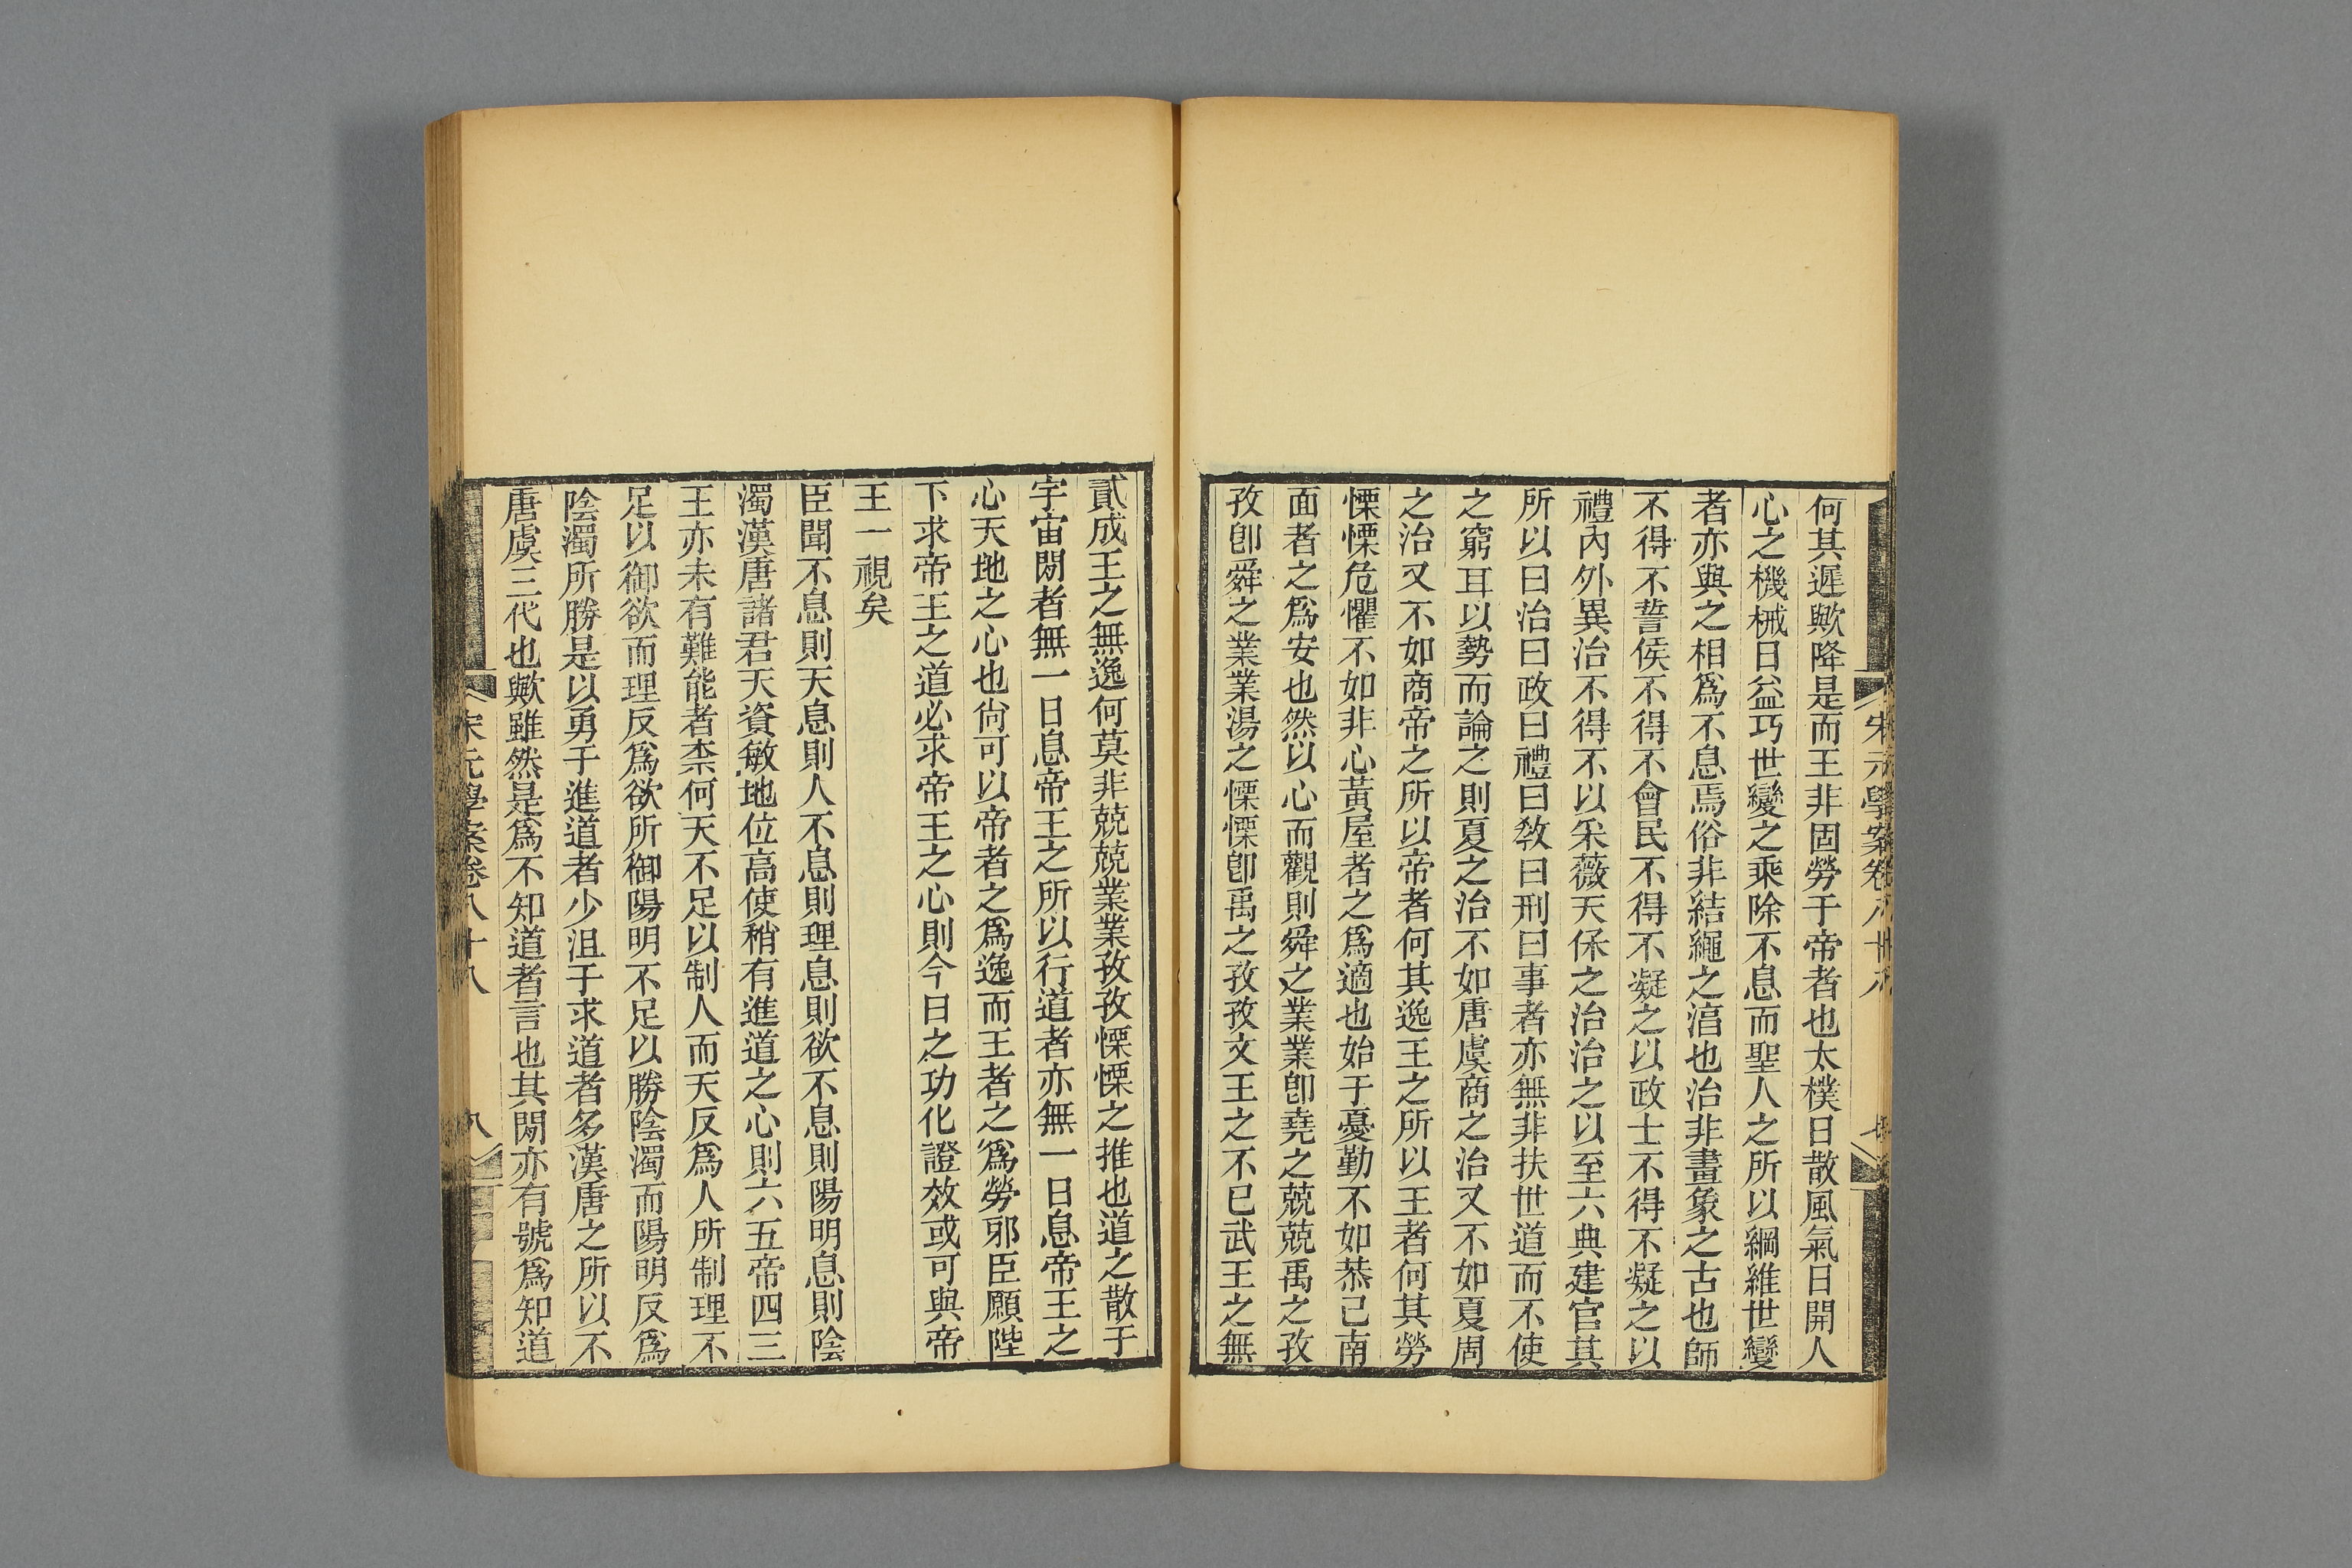 宋元學案卷八十八
何其遲歟降是而王非固勞于帝者也太樸日散風氣日開人
心之機械日益巧世變之乘除不息而聖人之所以綱維世變
者亦與之相爲不息焉俗非結繩之湻也治非畫象之古也師
不得不誓侯不得不會民不得不凝之以政士不得不凝之以
禮內外異治不得不以采薇天保之治治之以至六典建官其
所以曰治曰政曰禮曰敎曰刑曰事者亦無非扶世道而不使
之窮耳以勢而論之則夏之治不如唐虞商之治又不如夏周
之治又不如商帝之所以帝者何其逸王之所以王者何其勞
慄慄危懼不如非心黃屋者之爲適也始于憂勤不如恭己南
面者之爲安也然以心而觀則舜之業業卽堯之兢兢禹之孜
孜卽舜之業業湯之慄慄卽禹之孜孜文王之不已武王之無
貳成王之無逸何莫非兢兢業業孜孜慄慄之推也道之散于
宇宙閒者無一日息帝王之所以行道者亦無一日息帝王之
心天地之心也尙可以帝者之爲逸而王者之爲勞邪臣願陛
下求帝王之道必求帝王之心則今日之功化證效或可與帝
王一視矣
臣聞不息則天息則人不息則理息則欲不息則陽明息則陰
濁漢唐諸君天資敏地位高使稍有進道之心則六五帝四三
王亦未有難能者柰何天不足以制人而天反爲人所制理不
足以御欲而理反爲欲所御陽明不足以勝陰濁而陽明反爲
陰濁所勝是以勇于進道者少沮于求道者多漢唐之所以不
唐虞三代也歟雖然是爲不知道者言也其閒亦有號爲知道
宋元學案卷八十八
八